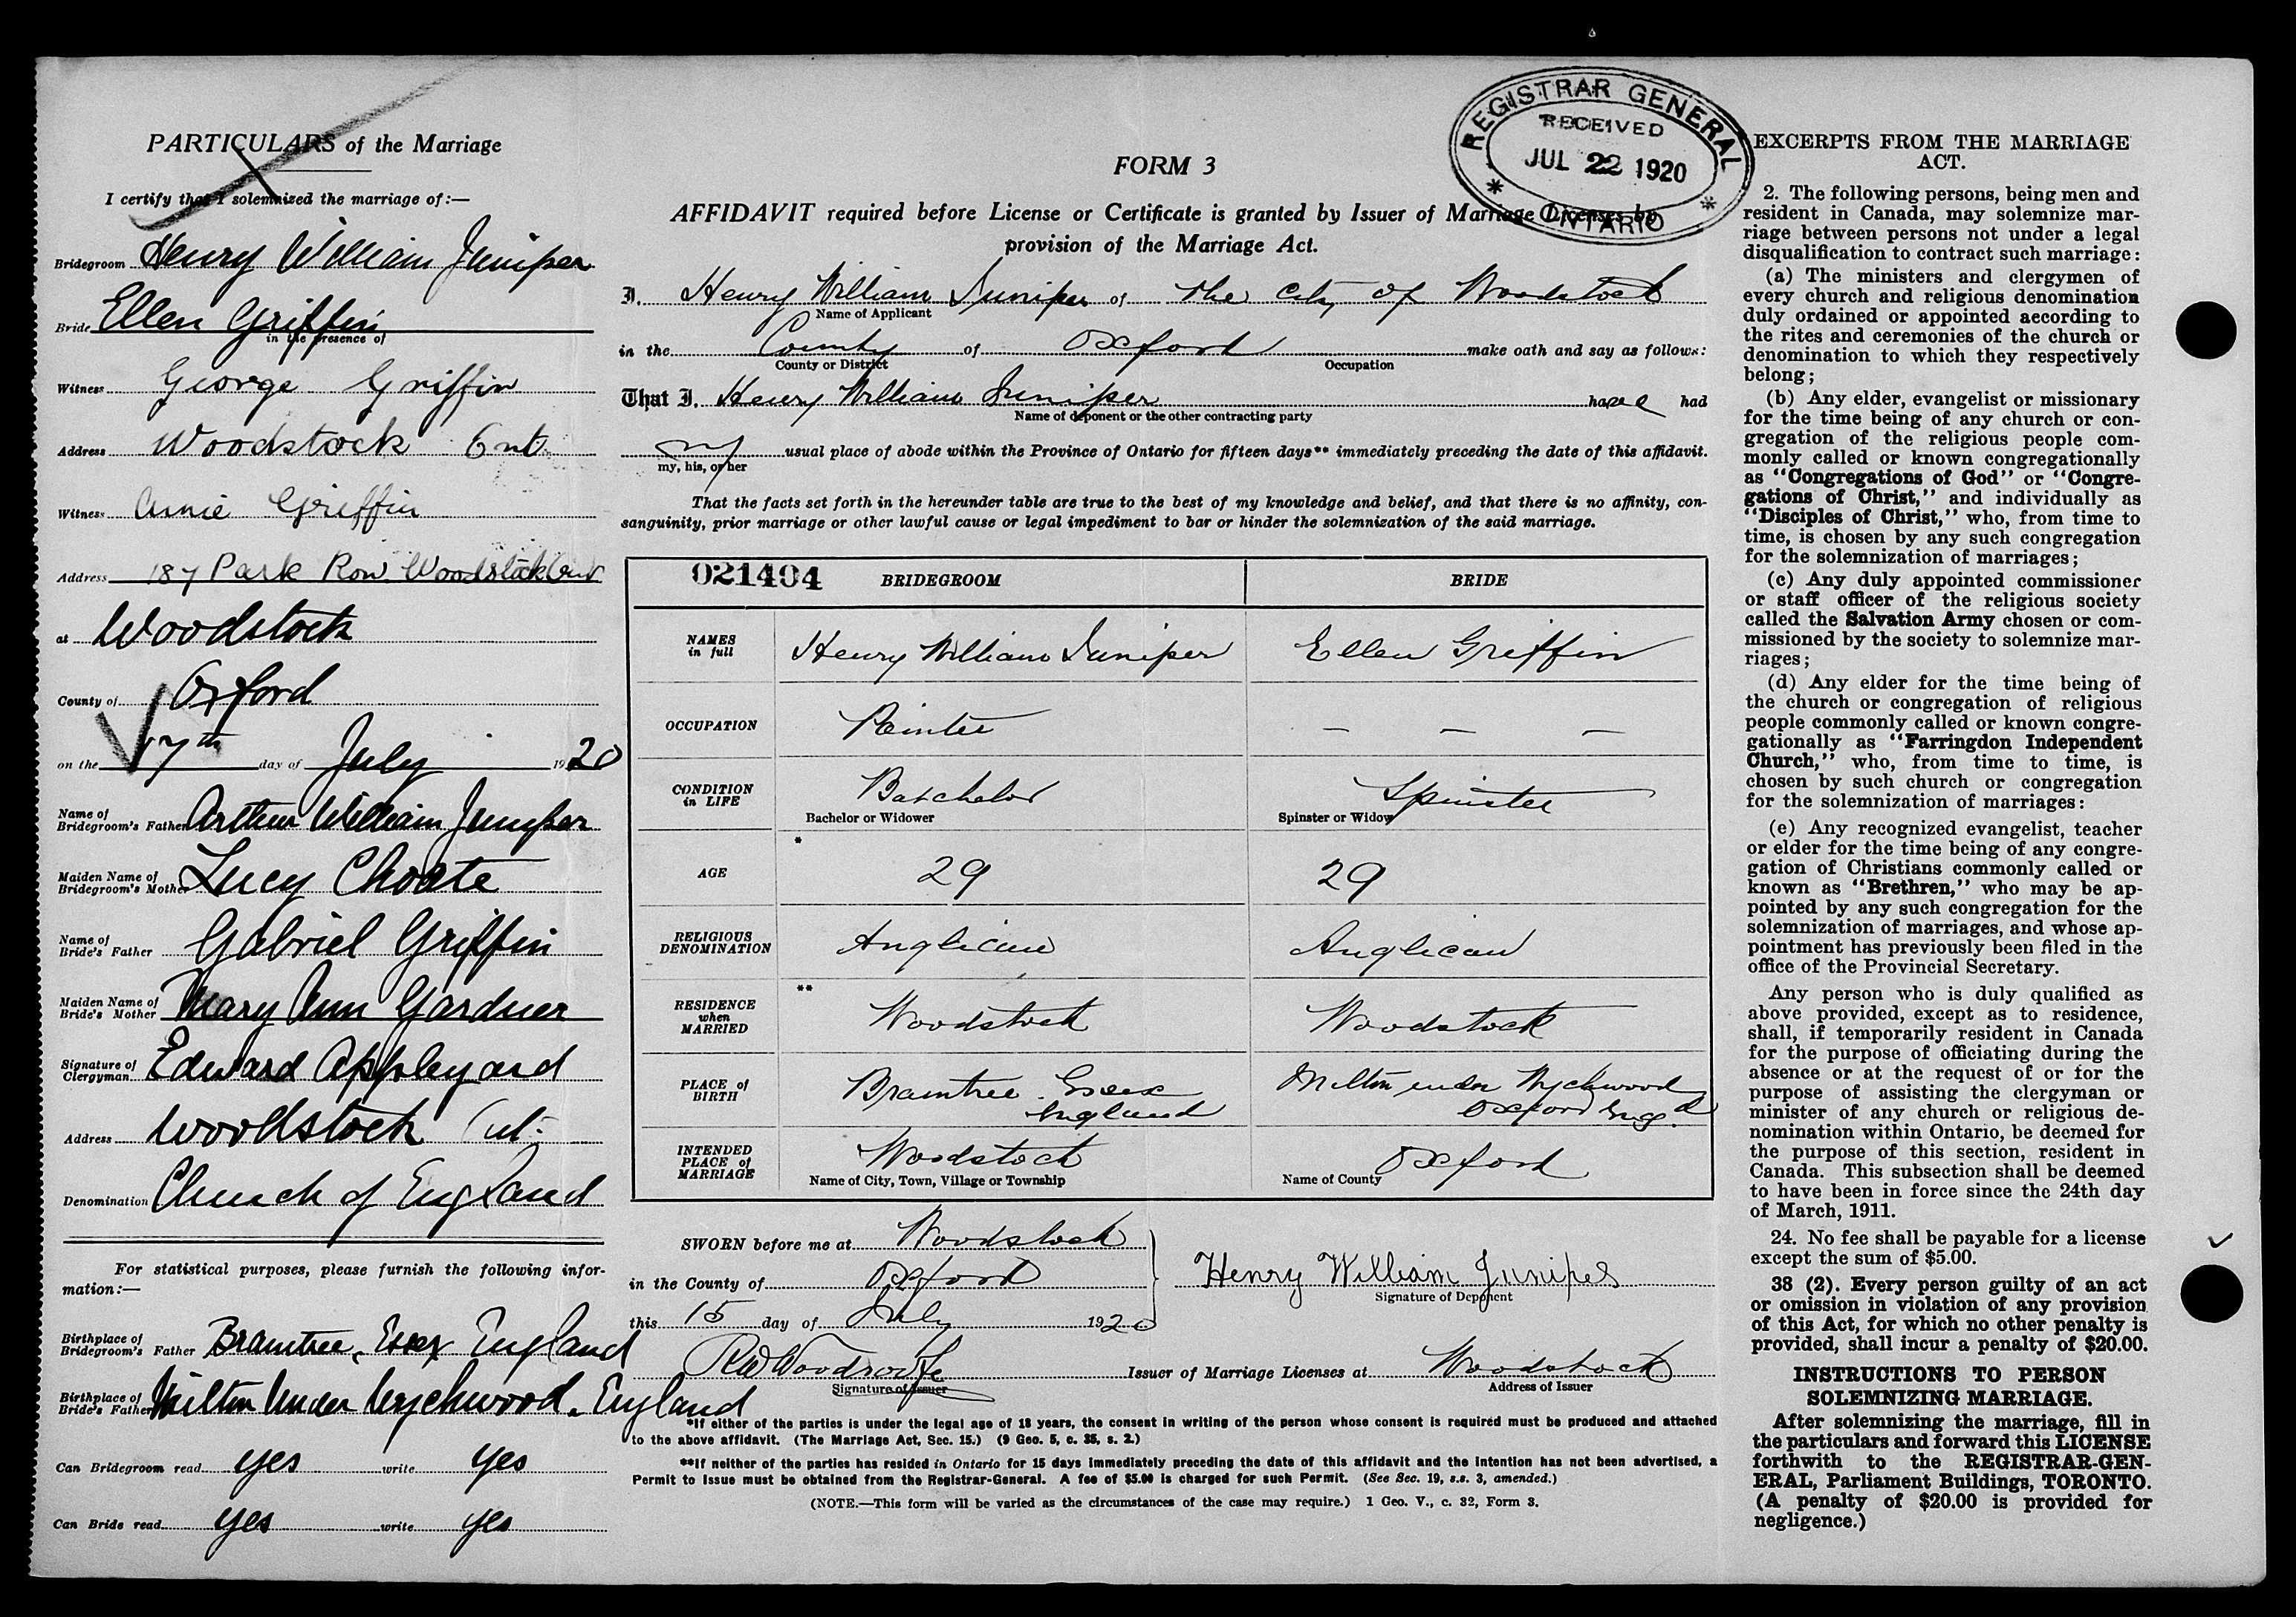 PARTICULARS of the Marriage
I certify that I solemnized the marriage of:—
Bridegroom Henry William Juniper
Bride Ellen Griffin
in the presence of
Witness George Griffin
Address Woodstock Ont.
Witness Annie Griffin
Address 187 Park Row Woodstock Ont
at Woodstock
County of Oxford
on the 17th day of July 1920
Name of Bridegroom's Father Arthur William Juniper
Maiden Name of Bridegroom's Mother Lucy Choate
Name of Bride's Father Gabriel Griffin
Maiden Name of Bride's Mother Mary Ann Gardner
Signature of Clergyman Edward Appleyard
Address Woodstock Ont.
Denomination Church of England
For statistical purposes, please furnish the following infor-
mation:—
Birthplace of Bridegroom's Father Braintree, Essex England
Birthplace of Bride's Father Milton Under Wychwood. England
Can Bridegroom read yes write yes
Can Bride read yes write yes
REGISTRAR GENERAL
RECEIVED
JUL 22 1920
* ONTARIO *
FORM 3
AFFIDAVIT required before License or Certificate is granted by Issuer of Marriage Licenses by
provision of the Marriage Act.
I, Henry William Juniper of the City of Woodstock
Name of Applicant
in the County of Oxford make oath and say as follows:
County or District Occupation
That I, Henry William Juniper have had
Name of deponent or the other contracting party
my usual place of abode within the Province of Ontario for fifteen days** immediately preceding the date of this affidavit.
my, his, or her
That the facts set forth in the hereunder table are true to the best of my knowledge and belief, and that there is no affinity, con-
sanguinity, prior marriage or other lawful cause or legal impediment to bar or hinder the solemnization of the said marriage.
021404 BRIDEGROOM BRIDE
NAMES in full Henry William Juniper Ellen Griffin
OCCUPATION Painter — — —
CONDITION in LIFE Batchelor Spinster
Bachelor or Widower Spinster or Widow
*
AGE 29 29
RELIGIOUS DENOMINATION Anglican Anglican
**
RESIDENCE when MARRIED Woodstock Woodstock
PLACE of BIRTH Braintree Essex England Milton under Wychwood Oxford Engd.
INTENDED PLACE of MARRIAGE Woodstock Oxford
Name of City, Town, Village or Township Name of County
SWORN before me at Woodstock
in the County of Oxford
this 15 day of July 1920
Henry William Juniper
Signature of Deponent
RW Woodroofe Issuer of Marriage Licenses at Woodstock
Signature of Issuer Address of Issuer
*If either of the parties is under the legal age of 18 years, the consent in writing of the person whose consent is required must be produced and attached
to the above affidavit. (The Marriage Act, Sec. 15.) (9 Geo. 5, c. 35, s. 2.)
**If neither of the parties has resided in Ontario for 15 days immediately preceding the date of this affidavit and the intention has not been advertised, a
Permit to Issue must be obtained from the Registrar-General. A fee of $5.00 is charged for such Permit. (See Sec. 19, s.s. 3, amended.)
(NOTE.—This form will be varied as the circumstances of the case may require.) 1 Geo. V., c. 32, Form 3.
EXCERPTS FROM THE MARRIAGE
ACT.
2. The following persons, being men and
resident in Canada, may solemnize mar-
riage between persons not under a legal
disqualification to contract such marriage:
(a) The ministers and clergymen of
every church and religious denomination
duly ordained or appointed according to
the rites and ceremonies of the church or
denomination to which they respectively
belong;
(b) Any elder, evangelist or missionary
for the time being of any church or con-
gregation of the religious people com-
monly called or known congregationally
as "Congregations of God" or "Congre-
gations of Christ," and individually as
"Disciples of Christ," who, from time to
time, is chosen by any such congregation
for the solemnization of marriages;
(c) Any duly appointed commissioner
or staff officer of the religious society
called the Salvation Army chosen or com-
missioned by the society to solemnize mar-
riages;
(d) Any elder for the time being of
the church or congregation of religious
people commonly called or known congre-
gationally as "Farringdon Independent
Church," who, from time to time, is
chosen by such church or congregation
for the solemnization of marriages:
(e) Any recognized evangelist, teacher
or elder for the time being of any congre-
gation of Christians commonly called or
known as "Brethren," who may be ap-
pointed by any such congregation for the
solemnization of marriages, and whose ap-
pointment has previously been filed in the
office of the Provincial Secretary.
Any person who is duly qualified as
above provided, except as to residence,
shall, if temporarily resident in Canada
for the purpose of officiating during the
absence or at the request of or for the
purpose of assisting the clergyman or
minister of any church or religious de-
nomination within Ontario, be deemed for
the purpose of this section, resident in
Canada. This subsection shall be deemed
to have been in force since the 24th day
of March, 1911.
24. No fee shall be payable for a license
except the sum of $5.00.
38 (2). Every person guilty of an act
or omission in violation of any provision
of this Act, for which no other penalty is
provided, shall incur a penalty of $20.00.
INSTRUCTIONS TO PERSON
SOLEMNIZING MARRIAGE.
After solemnizing the marriage, fill in
the particulars and forward this LICENSE
forthwith to the REGISTRAR-GEN-
ERAL, Parliament Buildings, TORONTO.
(A penalty of $20.00 is provided for
negligence.)